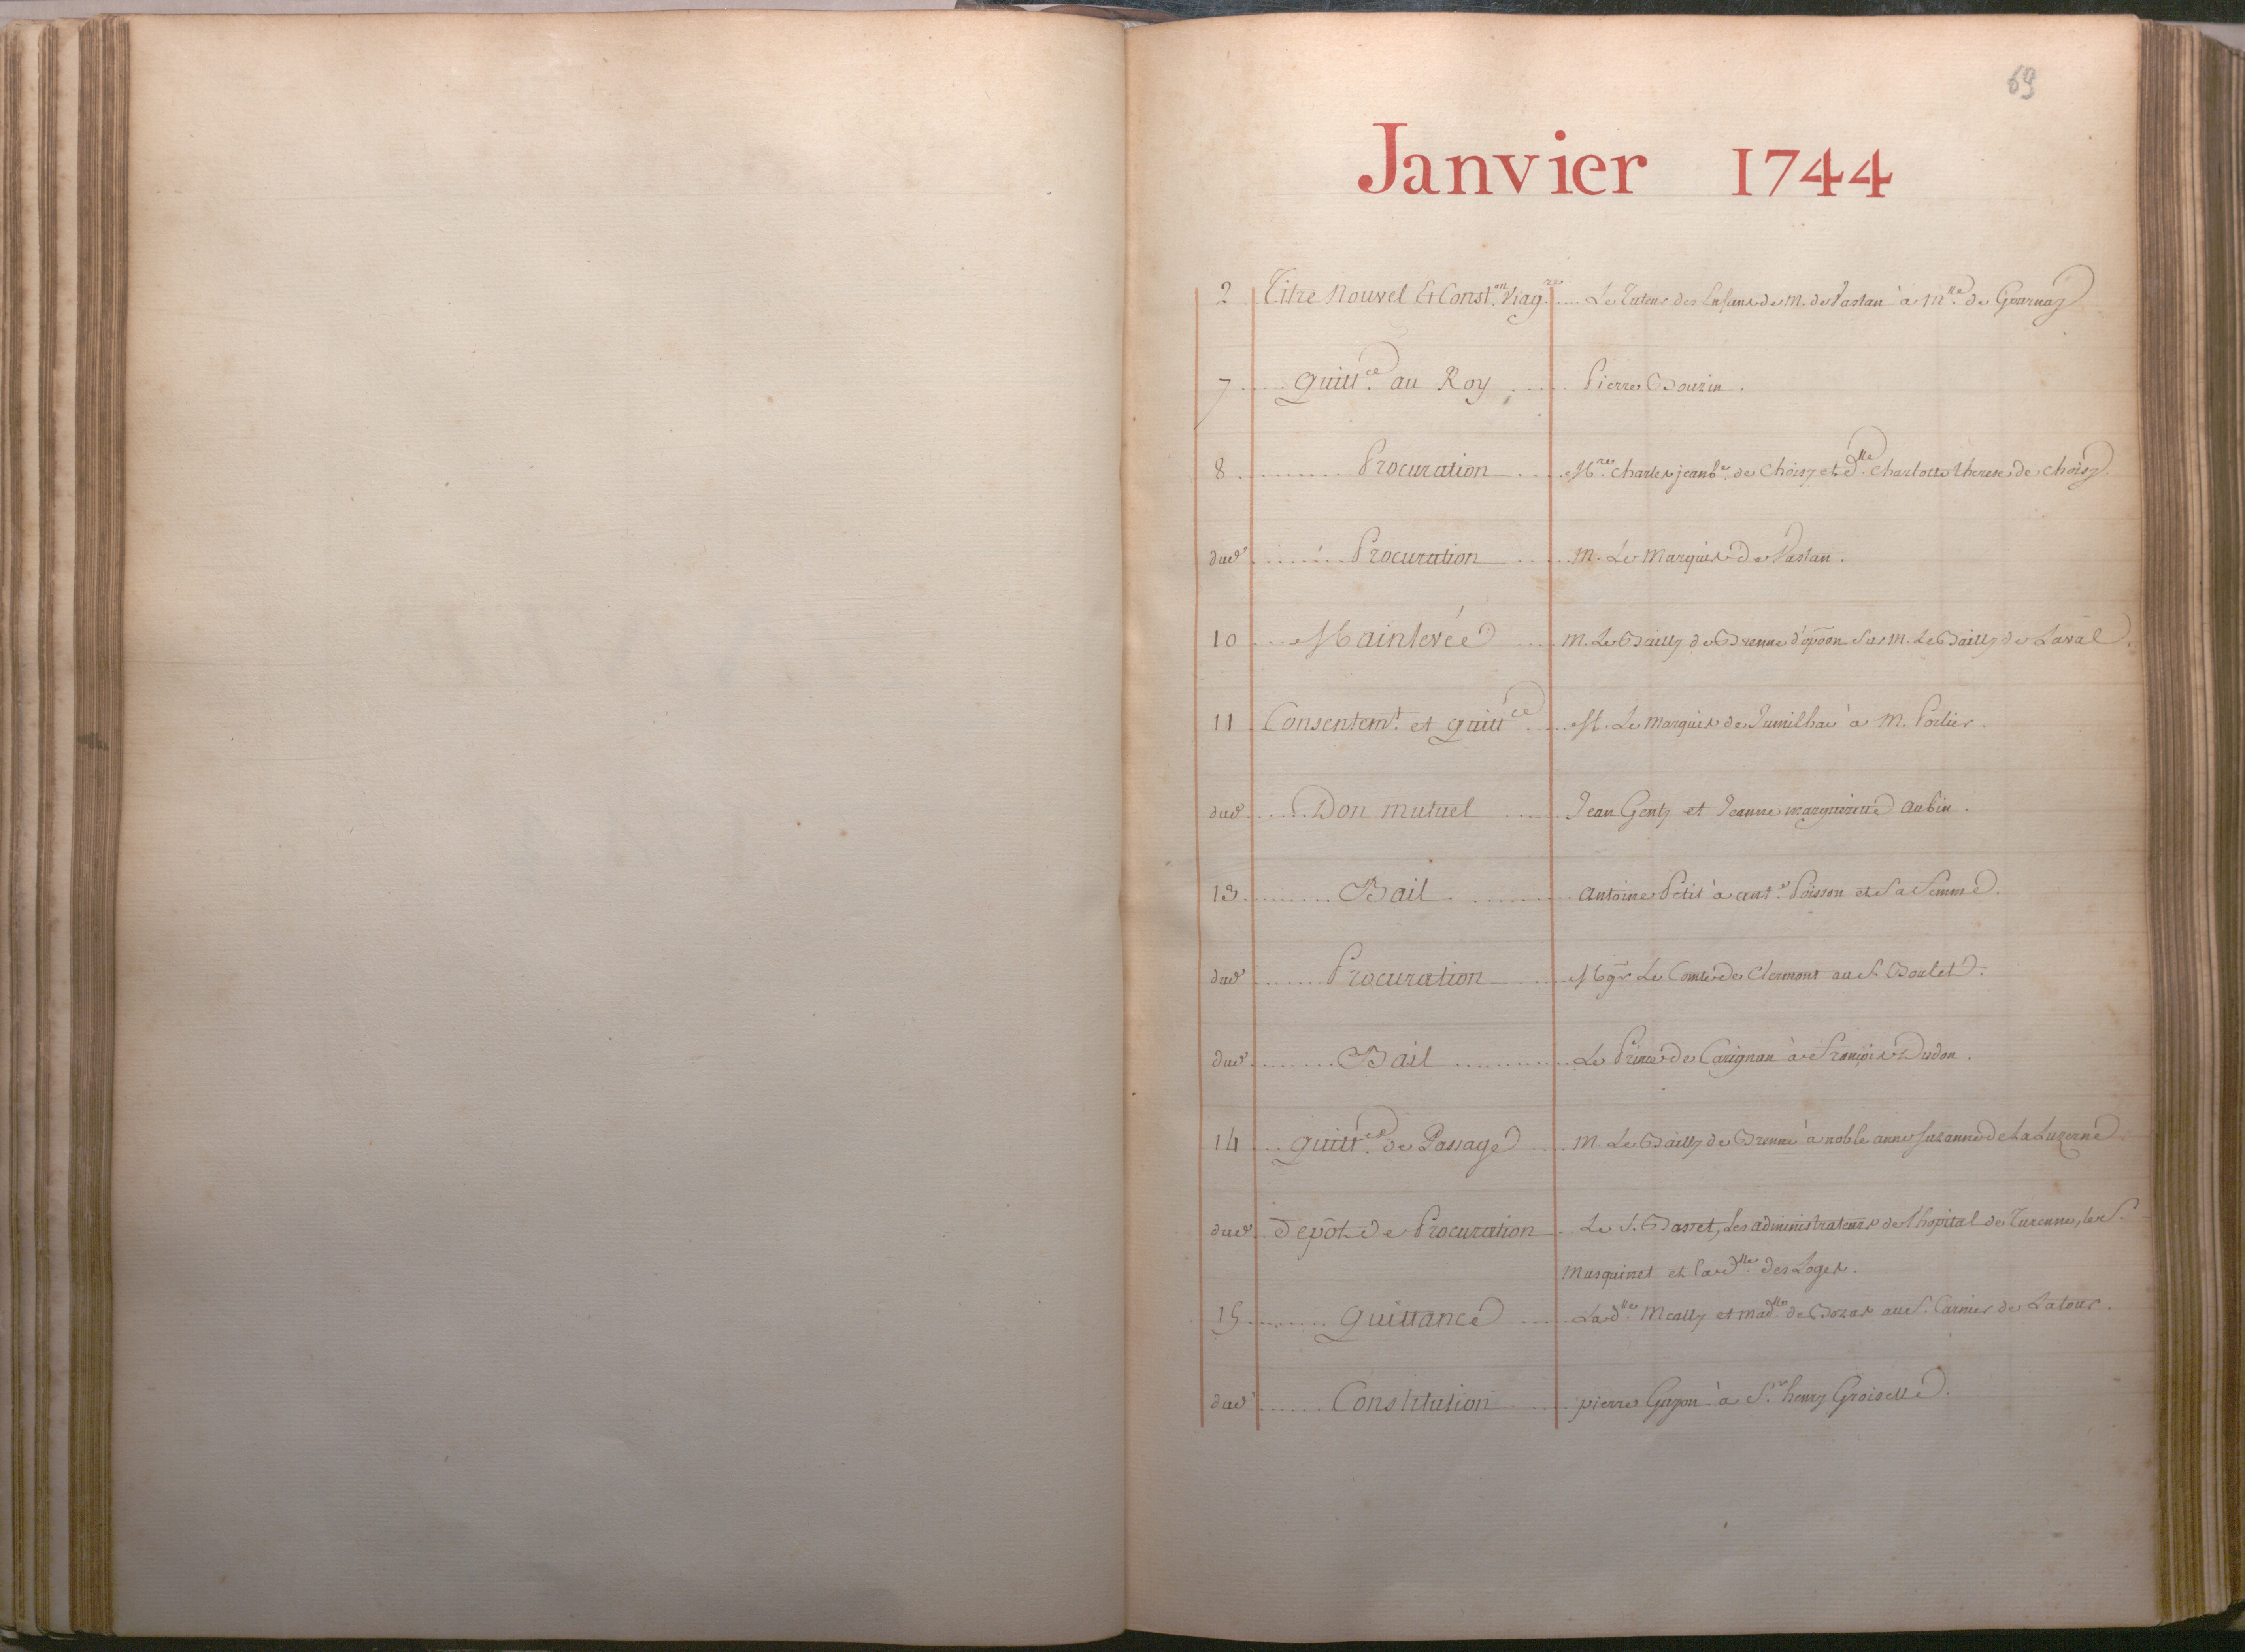 69
Janvier 1744
2 Titre Nouvel Et Const.on Viag.re Le Tuteur des Enfans de M. de Vastan à Mlle. de Gournay
7 Quitt.ce au Roy Pierre Bouzin.
8 Procuration Mre. Charles jean b.e de Choisy et dlle. Charlotte therese de choisy.
dud. Procuration M. Le Marquis de Vastan.
10 Mainlevée M. Le Bailly de Brenne d'opōon Sur M. Le Bailly de Laval.
11 Consentem.t et quitt.ce M. Le Marquis de Jumilhac à M. Portier.
dud. Don mutuel Jean Genty et Jeanne margueritte Aubin.
13 Bail Antoine Petit à ant.e Poisson et Sa femme.
dud. Procuration Mgr Le Comte de Clermont au S. Boulet.
dud. Bail Le Prince de Carignan à François Dudon.
14 quitt.ce de Passage M. Le Bailly de Brenne à noble anne Suzanne de La Luzerne.
dud. depôt de Procuration Le S. Basset, Les administrateurs de l'hopital de Turenne, les S.
Musquinet et la dlle. des Loges.
15 Quittance La dlle. Mcally et madlle. de Bozas au S. Carnier de Latour.
dud. Constitution pierre Guyon à S.r henry Groiselle.